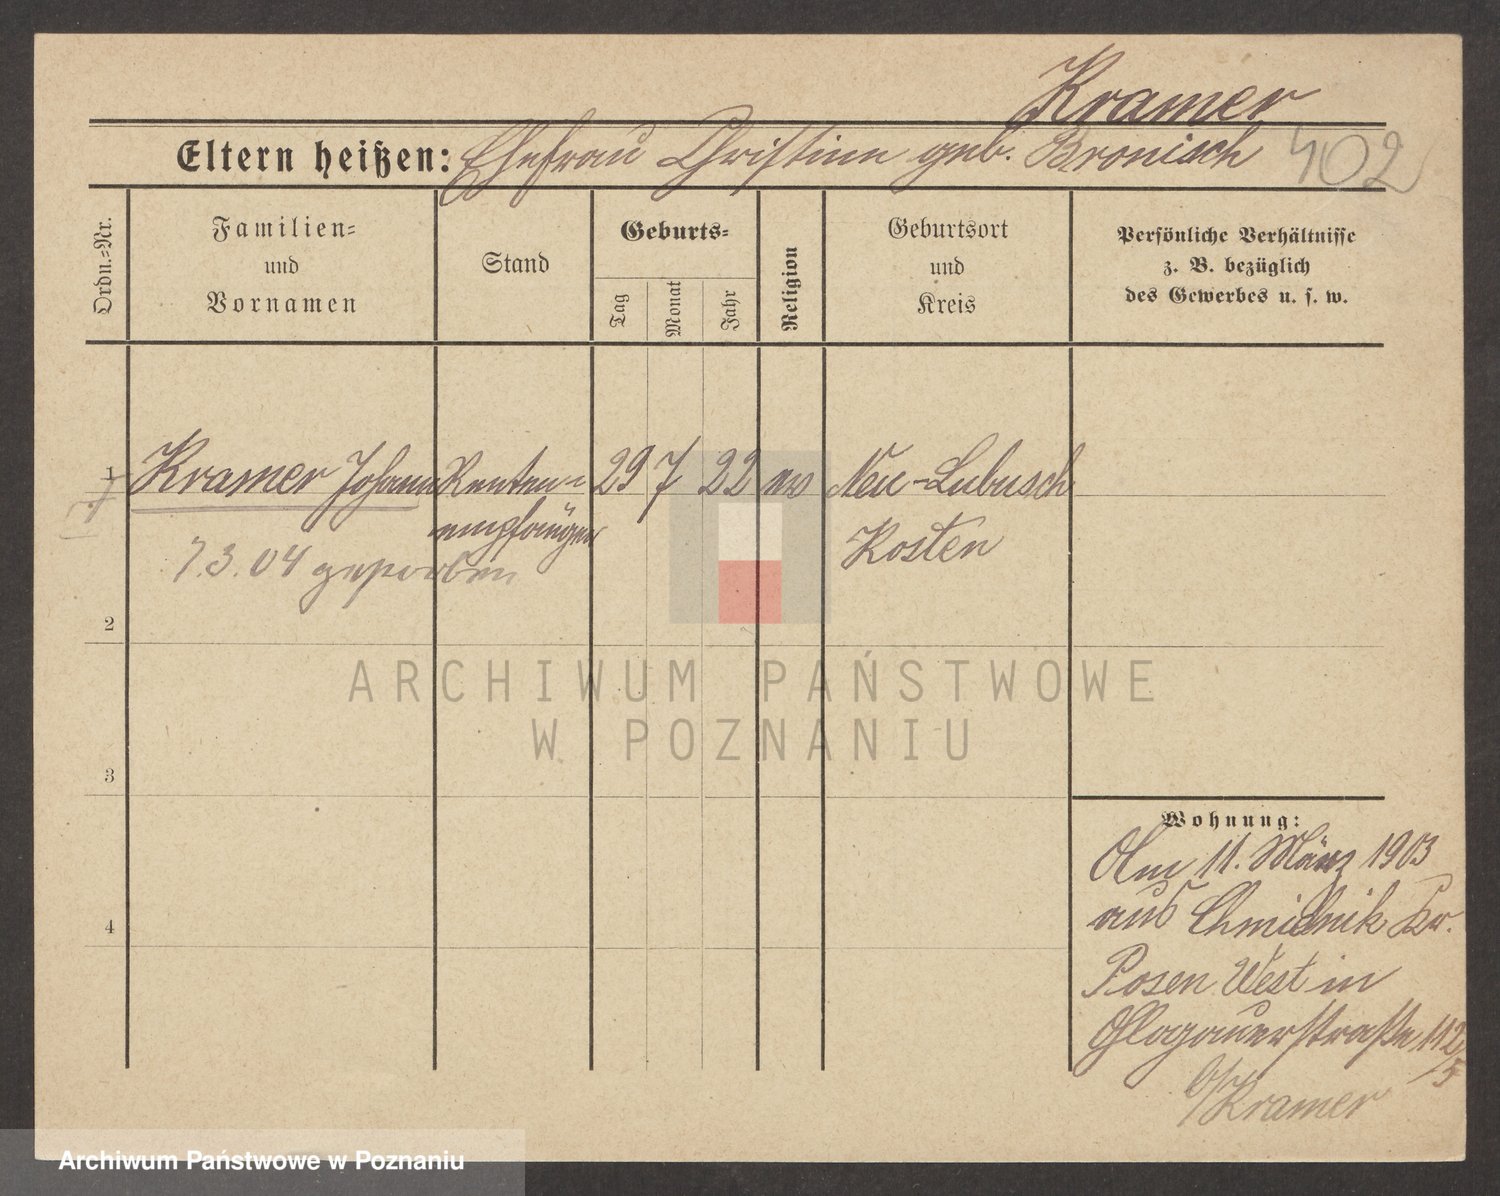 Kramer
Eltern heißen: Ehefrau Christine geb. Bronisch 402
Ordn.=Nr.
Familien=
und
Vornamen
Stand
Geburts=
Tag
Monat
Jahr
Religion
Geburtsort
und
Kreis
Persönliche Verhältnisse
z. B. bezüglich
des Gewerbes u. s. w.
1 Kramer Johann Renten= 29 7 22 ev Neu-Lubusch
empfänger Kosten
† 7.3.04 gestorben
2
3
4
Wohnung:
Am 11. März 1903
aus Chmielnik Kr.
Posen West in
Glogauerstraße 112/5
b/Kramer
ARCHIWUM PAŃSTWOWE
W POZNANIU
Archiwum Państwowe w Poznaniu